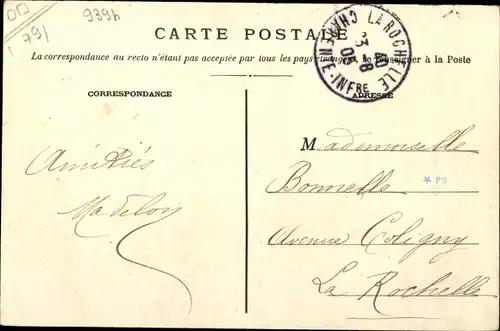 9396
(79)
CARTE POSTALE
La correspondance au recto n'étant pas acceptée par tous les pays étrangers, se renseigner à la Poste
LA ROCHELLE
CHARENTE-INFRE
CORRESPONDANCE
ADRESSE
Amitiés
Madelon
Mademoiselle
Bonnelle
Avenue Coligny
La Rochelle